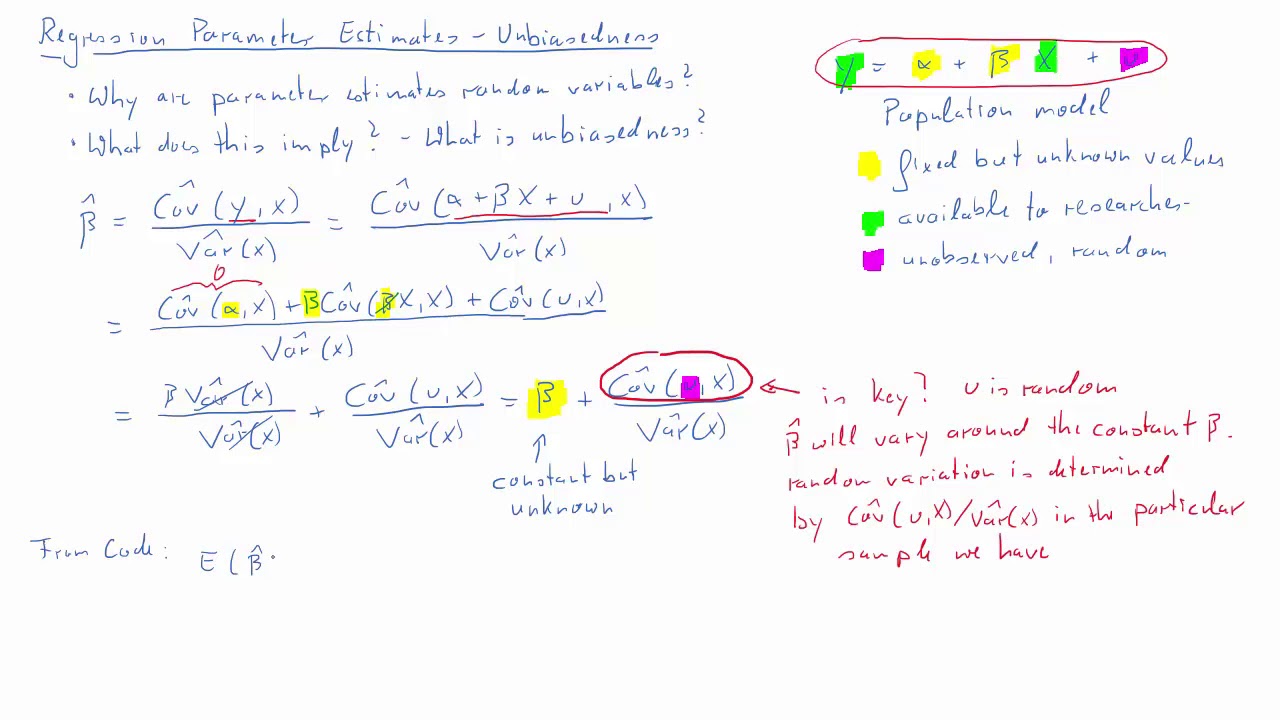 Regression Parameter Estimates - Unbiasedness
• Why are parameter estimates random variables?
• What does this imply? - What is unbiasedness?
y = α + β X + u
Population model
fixed but unknown values
available to researches-
unobserved, random
β̂ = Côv (y, x) / Vâr (x) = Côv (α + β X + u, x) / Vâr (x)
0
= Côv (α, x) + β Côv (β X, X) + Côv (u, x) / Vâr (x)
= β Vâr (x) / Vâr (x) + Côv (u, x) / Vâr (x) = β + Côv (u, x) / Vâr (x)
↑
constant but
unknown
← is key? u is random
β̂ will vary around the constant β.
random variation is determined
by Côv (u, x) / Vâr (x) in the particular
sample we have
From Code: E ( β̂